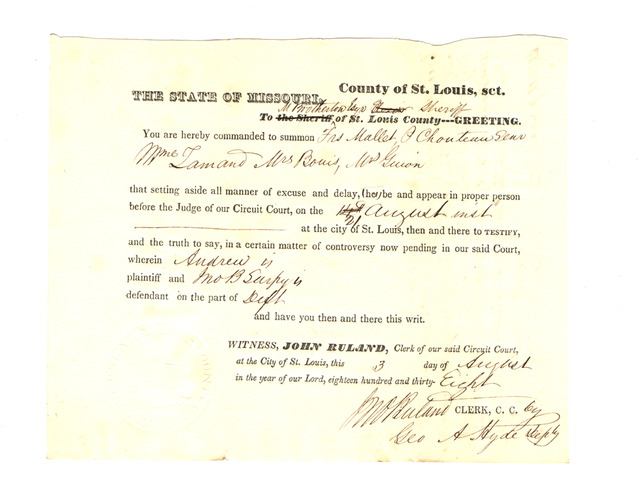 THE STATE OF MISSOURI, County of St. Louis, sct.
M Brotherton Sheriff
To the Sheriff of St. Louis County---GREETING.
You are hereby commanded to summon Frs Mallet, P Chouteau Senr
Mme Lamand Mrs Bouis, Mr Guion
that setting aside all manner of excuse and delay, they be and appear in proper person
before the Judge of our Circuit Court, on the 21 August inst
at the city of St. Louis, then and there to TESTIFY,
and the truth to say, in a certain matter of controversy now pending in our said Court,
wherein Andrew is
plaintiff and Jno B Sarpy is
defendant on the part of Deft
and have you then and there this writ.
WITNESS, JOHN RULAND, Clerk of our said Circuit Court,
at the City of St. Louis, this 3 day of August
in the year of our Lord, eighteen hundred and thirty-Eight
Jno Ruland CLERK, C. C. by
Geo A Hyde Depty